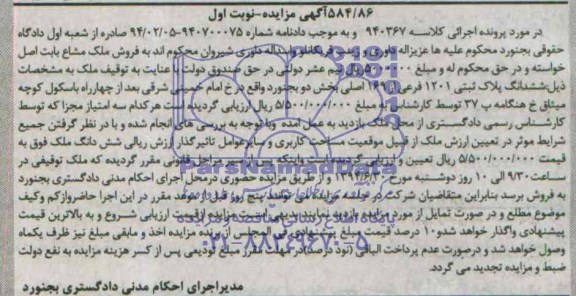 ۵۸۴/۸۶آگهی مزایده-نوبت اول
در مورد پرونده اجرائی کلاسه ۹۴۰۳۶۷ و به موجب دادنامه شماره ۹۴۰۷۰۰۰۷۵-۹۴/۰۲/۰۵ صادره از شعبه اول دادگاه
حقوقی بجنورد محکوم علیه ها عزیزاله داوری و داوری شیروان محکوم اند به فروش ملک مشاع بابت اصل
خواسته و در حق محکوم له و مبلغ ریال نیم عشر دولتی در حق صندوق دولت با عنایت به توقیف ملک به مشخصات
ذیل:ششدانگ پلاک ثبتی ۱۲۰۱ فرعی از اصلی بخش دو بجنورد واقع در خ امام خمینی شرقی بعد از چهارراه باسکول کوچه
میثاق خ هنگامه پ ۳۷ توسط کارشناس به مبلغ ۵/۵۰۰/۰۰۰/۰۰۰ ریال ارزیابی گردیده است هر کدام سه امتیاز مجزا که توسط
کارشناس رسمی دادگستری از محل ملک بازدید به عمل آمده و با توجه به بررسی های انجام شده و با در نظر گرفتن جمیع
شرایط موثر در تعیین ارزش ملک از قبیل موقعیت مساحت کاربری و سایر عوامل تاثیرگذار ارزش ریالی شش دانگ ملک فوق به
قیمت ۵/۵۰۰/۰۰۰/۰۰۰ ریال تعیین و ارزیابی گردیده است واینکه پس از سیر مراحل قانونی مقرر گردیده که ملک توقیفی در
ساعت ۹/۳۰ الی ۱۰ روز دوشنبه مورخ ۱۳۹۴/۶/۳۰ از طریق مزایده حضوری در محل اجرای احکام مدنی دادگستری بجنورد
به فروش برسد بنابراین متقاضیان شرکت در جلسه مزایده می توانند پنج روز قبل از موعد مقرر در این اجرا حاضر و از کم وکیف
موضوع مطلع و در صورت تمایل از مورد مزایده بازدید نمایند بدیهی است مزایده از قیمت ارزیابی شروع و به بالاترین قیمت
پیشنهادی واگذار خواهد شد و ۱۰ درصد قیمت مبلغ پیشنهادی فی المجلس از برنده مزایده اخذ و مابقی مبلغ نیز ظرف یکماه
وصول خواهد شد و درصورت عدم پرداخت الباقی (نود درصد) در مهلت مقرر مبلغ تودیعی پس از کسر هزینه مزایده به نفع دولت
ضبط و مزایده تجدید می گردد.
مدیراجرای احکام مدنی دادگستری بجنورد
ParsNamadData
۰۲۱-۸۸۳۴۹۶۷۰-۵